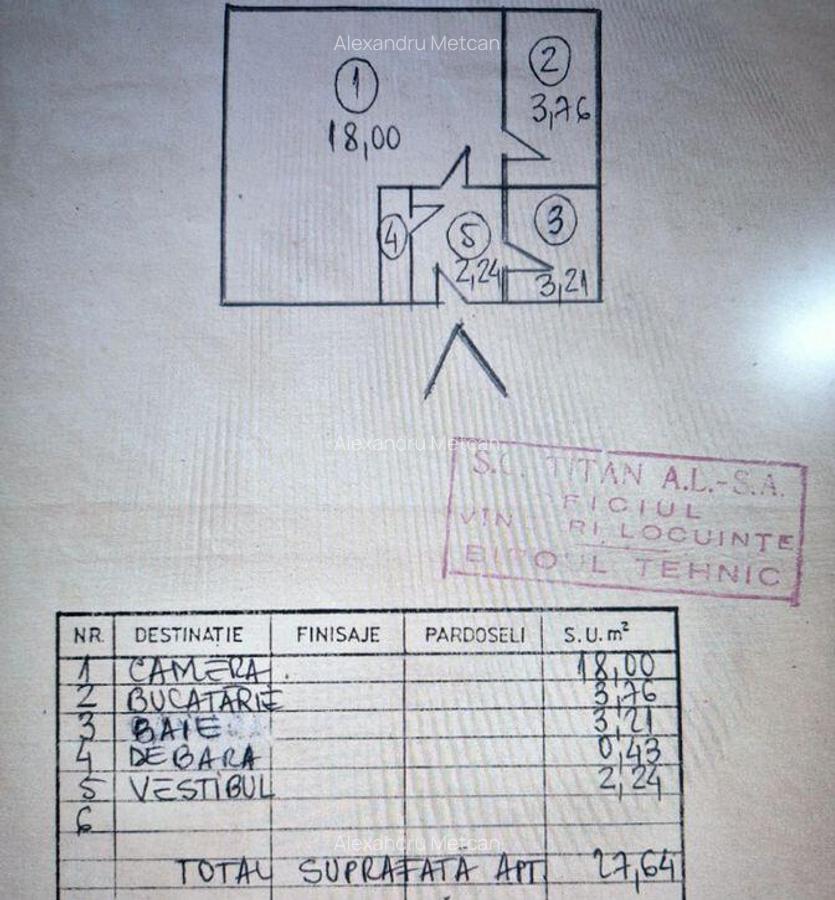 Alexandru Metcan
1
18,00
2
3,76
3
3,21
4
5
2,24
Alexandru Metcan
S.C. TITAN A.L.-S.A.
BIROUL TEHNIC
NR. DESTINAȚIE FINISAJE PARDOSELI S.U. m²
1 CAMERA 18,00
2 BUCATĂRIE 3,76
3 BAIE 3,21
4 DEBARA 0,43
5 VESTIBUL 2,24
6
Alexandru Metcan
TOTAL SUPRAFAȚĂ APT. 27,64